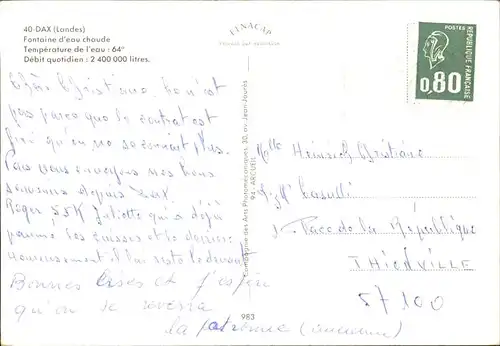 40-DAX (Landes)
Fontaine d'eau chaude
Température de l'eau : 64°
Débit quotidien : 2 400 000 litres.
Chère Christiane. Ce n'est
pas parce que le contrat est
fini qu'on ne se connait plus.
Nous vous envoyons nos bons
souvenirs depuis Dax
Roger Juliette qui a déjà
paumé les
heureusement il lui reste le devant
Bonnes Bises et j'espère
qu'on se reverra
la patronne (ancienne)
FINACAP
Compagnie des Arts Photomécaniques, 30, av. Jean-Jaurès
94 - ARCUEIL
983
POSTES
RÉPUBLIQUE FRANÇAISE
0,80
Melle Heinrich Christiane
Place de la République
THIONVILLE
57100